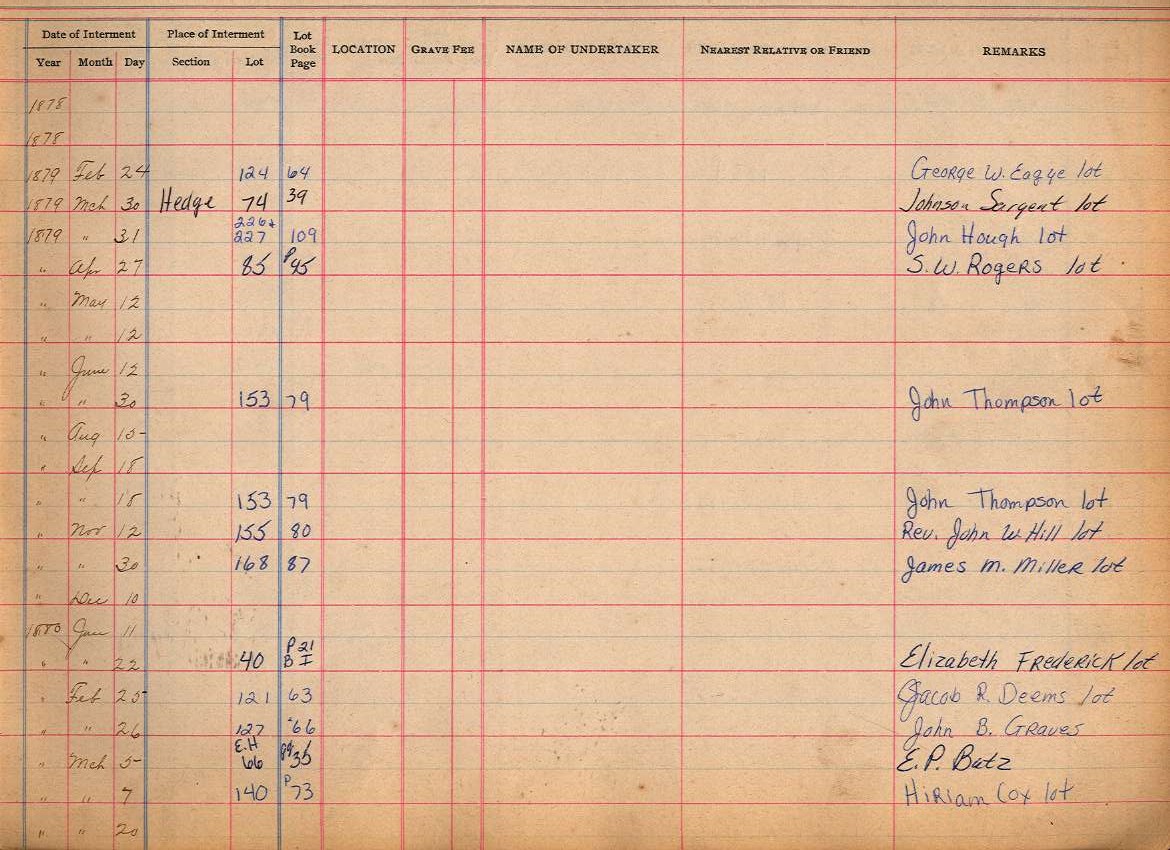 Date of Interment Place of Interment Lot Book Page LOCATION GRAVE FEE NAME OF UNDERTAKER NEAREST RELATIVE OR FRIEND REMARKS
Year Month Day Section Lot
1878
1878
1879 Feb 24 124 64 George W. Eagye lot
1879 Mch 30 Hedge 74 39 Johnson Sargent lot
226+
1879 " 31 227 109 John Hough lot
" Apr 27 85 P45 S.W. Rogers lot
" May 12
" " 12
" June 12
" " 30 153 79 John Thompson lot
" Aug 15
" Sep 18
" " 18 153 79 John Thompson lot
" Nov 12 155 80 Rev. John W. Hill lot
" " 30 168 87 James M. Miller lot
" Dec 10
1880 Jan 11
P 21
" " 22 40 B I Elizabeth Frederick lot
" Feb 25 121 63 Jacob R. Deems lot
" " 26 127 66 John B. Graves
E.H
" Mch 5 66 pg 35 E.P. Butz
" " 7 140 P 73 Hiriam Cox lot
" " 20